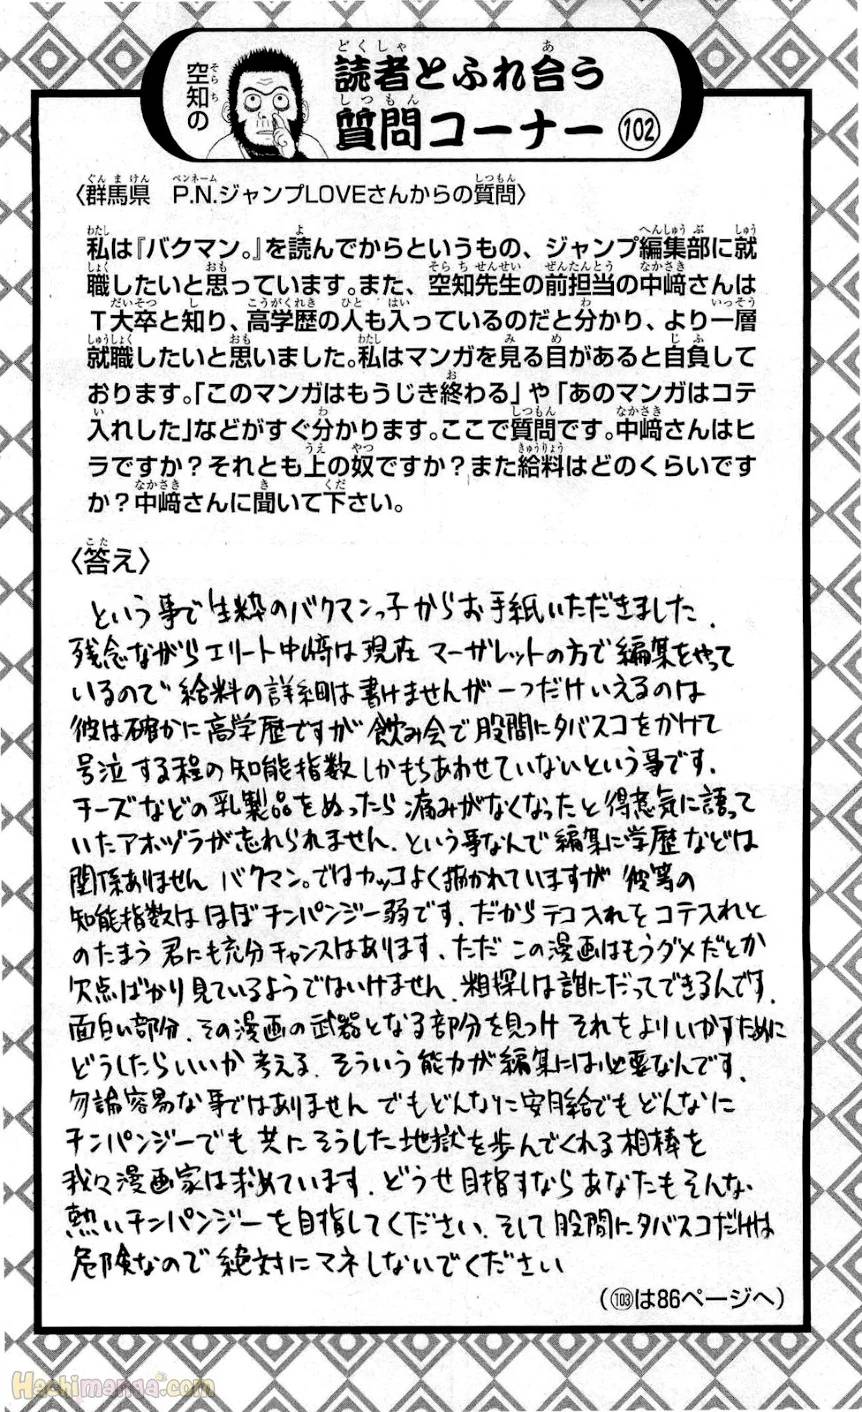 空知の
読者とふれ合う
質問コーナー 102
〈群馬県 P.N.ジャンプLOVEさんからの質問〉
私は『バクマン。』を読んでからというもの、ジャンプ編集部に就
職したいと思っています。また、空知先生の前担当の中﨑さんは
T大卒と知り、高学歴の人も入っているのだと分かり、より一層
就職したいと思いました。私はマンガを見る目があると自負して
おります。「このマンガはもうじき終わる」や「あのマンガはコテ
入れした」などがすぐ分かります。ここで質問です。中﨑さんはヒ
ラですか？それとも上の奴ですか？また給料はどのくらいです
か？中﨑さんに聞いて下さい。
〈答え〉
という事で生粋のバクマンっ子からお手紙いただきました．
残念ながらエリート中﨑は現在マーガレットの方で編集をやって
いるので給料の詳細は書けませんが一つだけいえるのは
彼は確かに高学歴ですが飲み会で股間にタバスコをかけて
号泣する程の知能指数しかもちあわせていないという事です．
チーズなどの乳製品をぬったら痛みがなくなったと得意気に語って
いたアホヅラが忘れられません．という事なんで編集に学歴などは
関係ありません バクマン。ではカッコよく描かれていますが彼等の
知能指数はほぼチンパンジー弱です．だからテコ入れをコテ入れと
のたまう君にも充分チャンスはあります．ただこの漫画はもうダメだとか
欠点ばかり見ているようではいけません．粗探しは誰にだってできるんです．
面白い部分．その漫画の武器となる部分を見つけそれをよりいかすために
どうしたらいいか考える．そういう能力が編集には必要なんです．
勿論容易な事ではありませんでもどんなに安月給でもどんなに
チンパンジーでも共にそうした地獄を歩んでくれる相棒を
我々漫画家は求めています．どうせ目指すならあなたもそんな
熱いチンパンジーを目指してください．そして股間にタバスコだけは
危険なので絶対にマネしないでください
（103は86ページへ）
Hachimanga.com